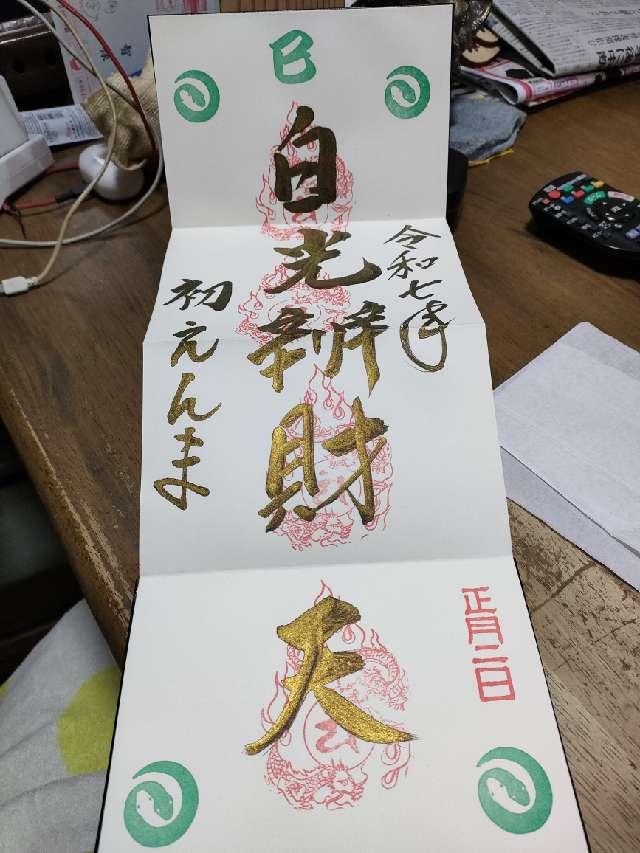 巳
白光辨財天
令和七年
初えんま
正月二日